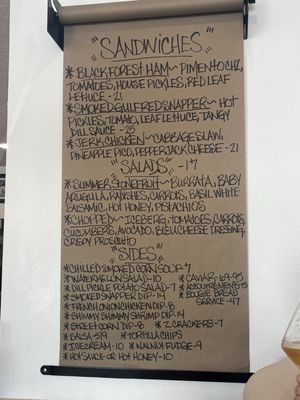 "SANDWICHES"
* BLACK FOREST HAM~ PIMENTO CHZ,
TOMATOES, HOUSE PICKLES, RED LEAF
LETTUCE -21
* SMOKED GULF RED SNAPPER~ HOT
PICKLES, TOMATO, LEAF LETTUCE, TANGY
DILL SAUCE -25
* JERK CHICKEN~ CABBAGE SLAW,
PINEAPPLE PICO, PEPPERJACK CHEESE -21
"SALADS" -17
* SUMMER STONEFRUIT~ BURRATA, BABY
ARUGULA, RADISHES, BASIL, WHITE
BALSAMIC, HOT HONEY, PISTACHIOS
* CHOPPED~ ICEBERG, TOMATOES, CARROTS,
CUCUMBERS, AVOCADO, BLEU CHEESE DRESSING,
CRISPY PROSCUITO
"SIDES"
* CHILLED SMOKED CORN SOUP -7
* WATERMELON SALAD -10 * CAVIAR -69-95
* DILL PICKLE POTATO SALAD -7 * ACCOUTREMENTS -15
* SMOKED SNAPPER DIP -14 * BOUGIE BREAD
SERVICE -47
* FRENCH ONION CHICKEN DIP -8
* SHIMMY SHIMMY SHRIMP DIP -14
* STREET CORN DIP -8 * Z. CRACKERS -7
* SALSA -5/9 * TORTILLA CHIPS
* ICE CREAM -10 * WALNUT FUDGE -9
* HOT SAUCE OR HOT HONEY -10